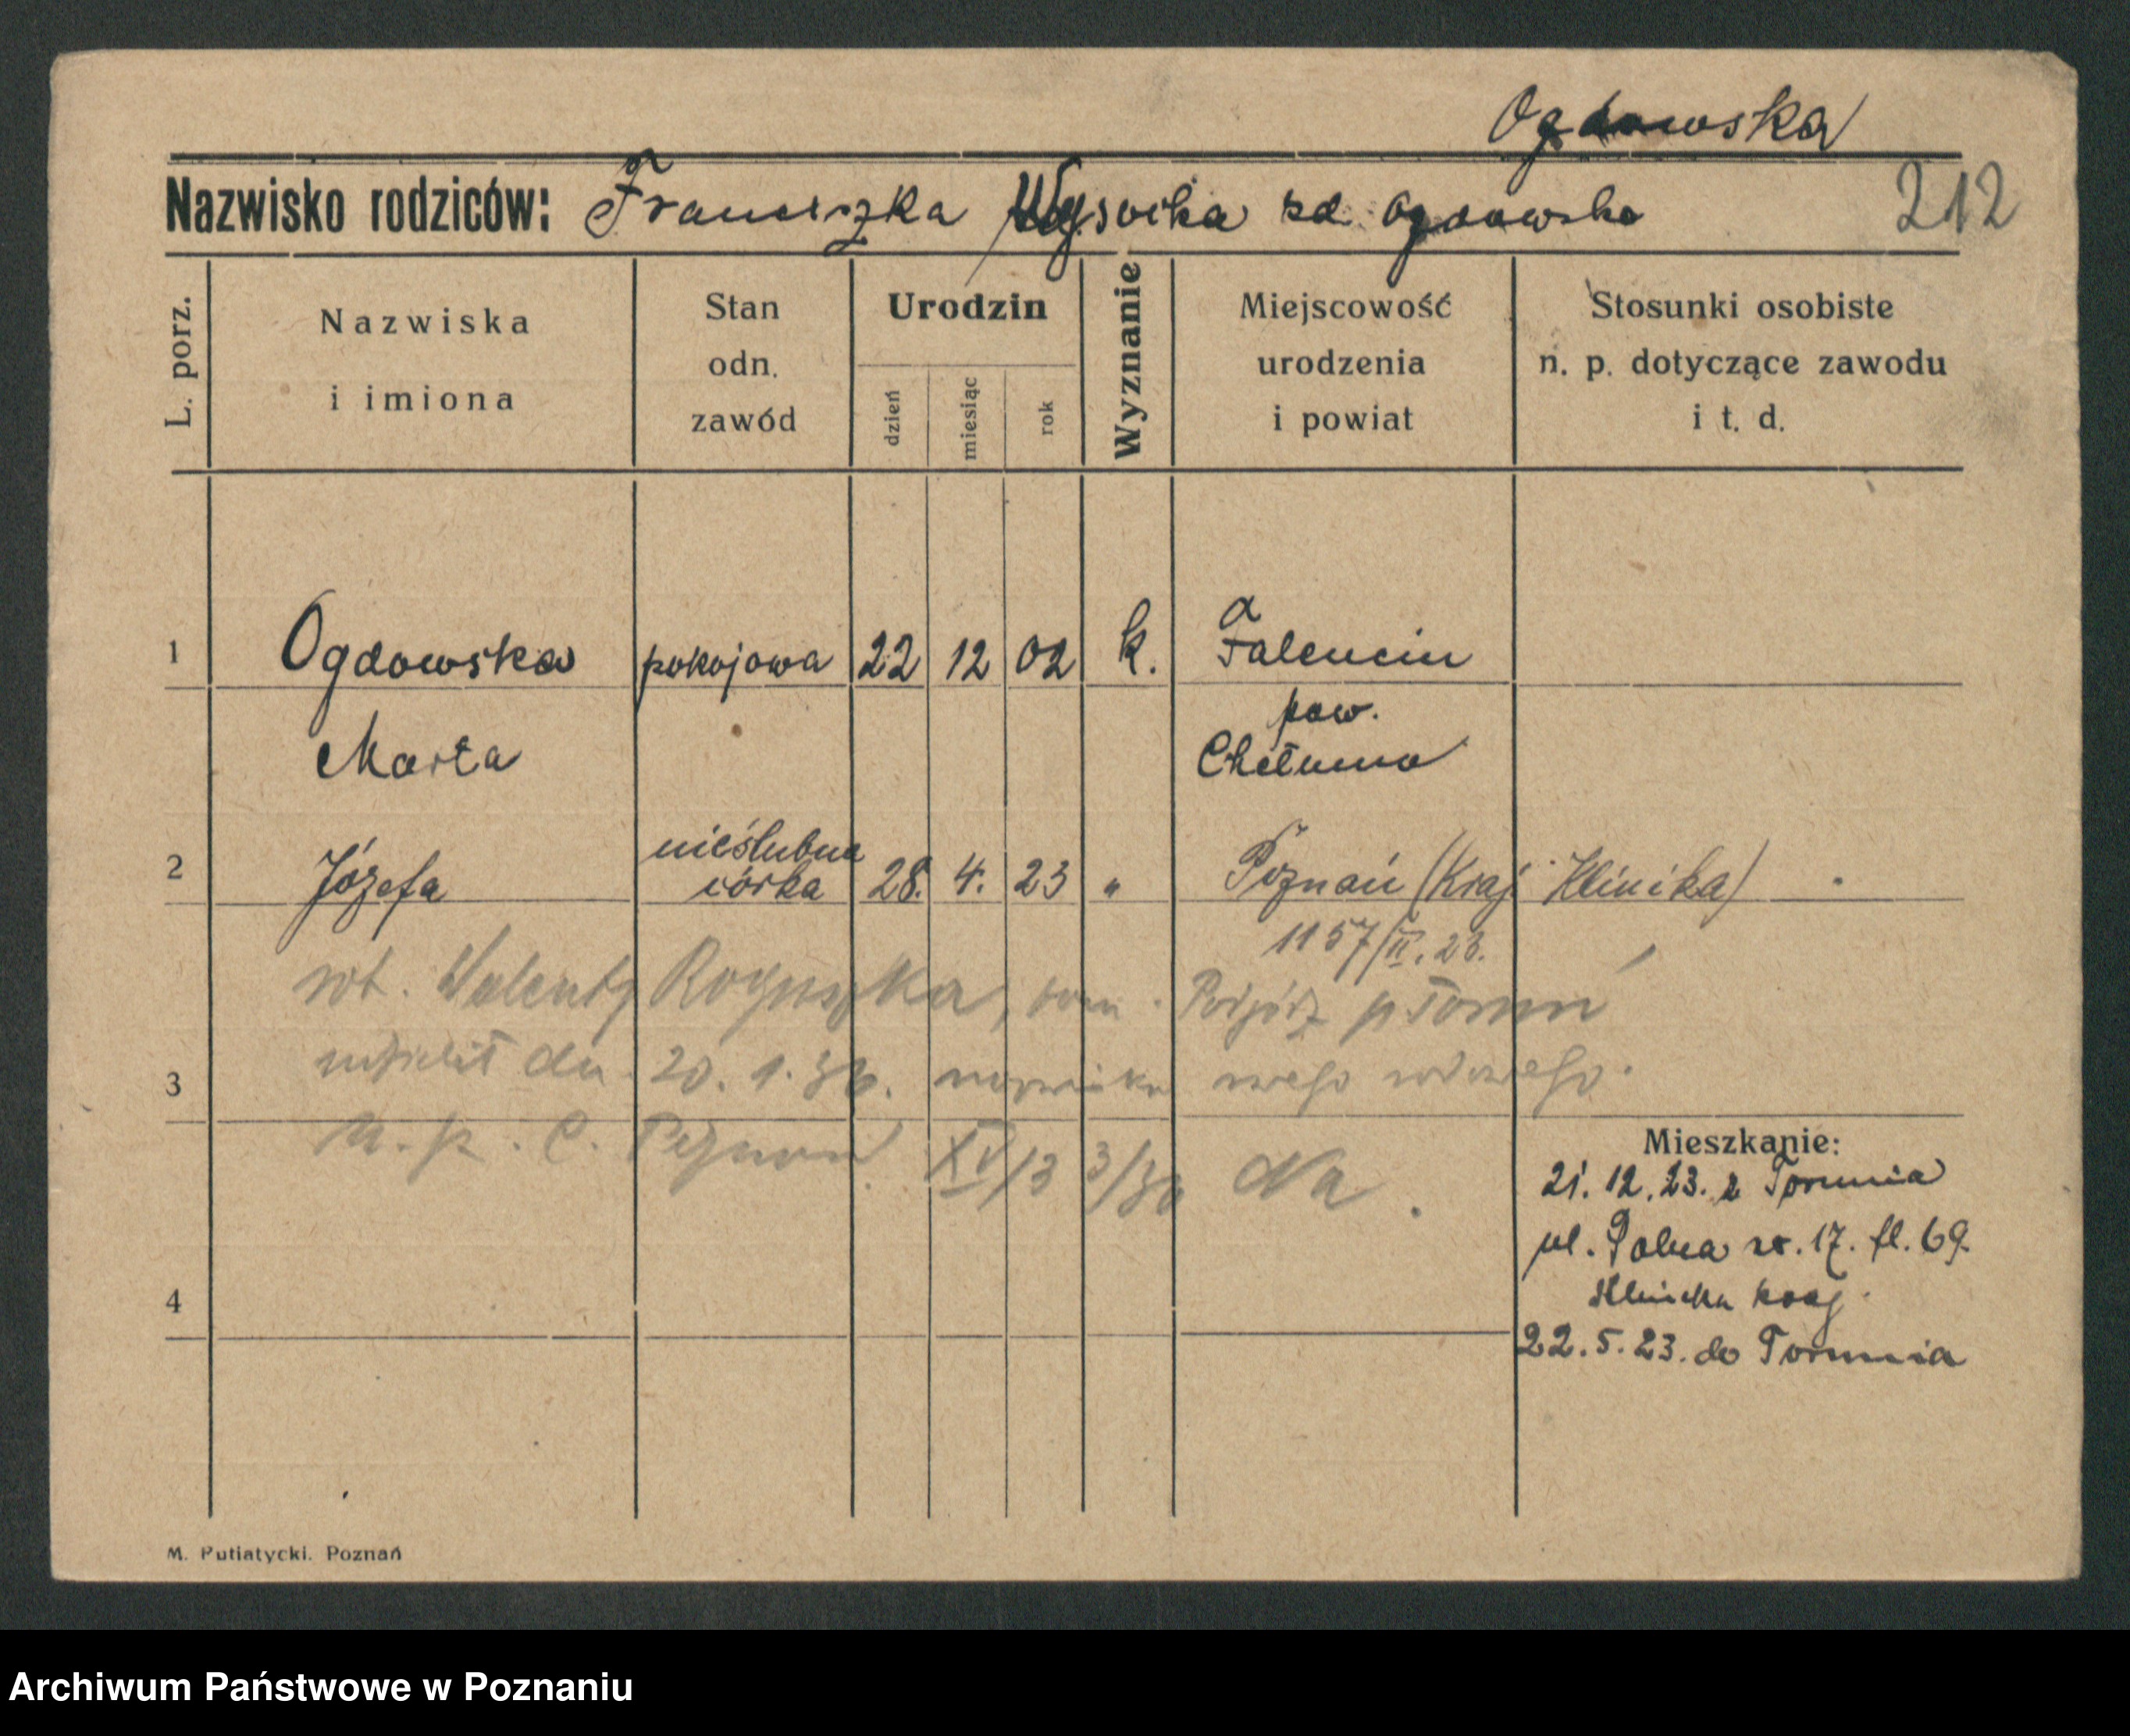 Ogdowska
Nazwisko rodziców: Franciszka Wysocka zd. Ogdowska 212
L. porz.
Nazwiska i imiona
Stan odn. zawód
Urodzin
dzień miesiąc rok
Wyznanie
Miejscowość urodzenia i powiat
Stosunki osobiste n. p. dotyczące zawodu i t. d.
1 Ogdowska pokojowa 22 12 02 k. Falencin
pow.
Marta Chełmno
nieślubna
2 Józefa córka 28. 4. 23 „ Poznań (Kraj. Klinika)
1157/II. 23.
Walenty Roguszka, zam. Podgórz p Toruń
3 dn. 20. 1. 36. nazwiska swego
U. S. C. Poznań XV/13 3/36 Na.
Mieszkanie:
21. 12. 23. z Torunia
4 ul. Polna nr. 17. fl. 69.
Klinika kraj.
22. 5. 23. do Torunia
M. Putiatycki. Poznań
Archiwum Państwowe w Poznaniu